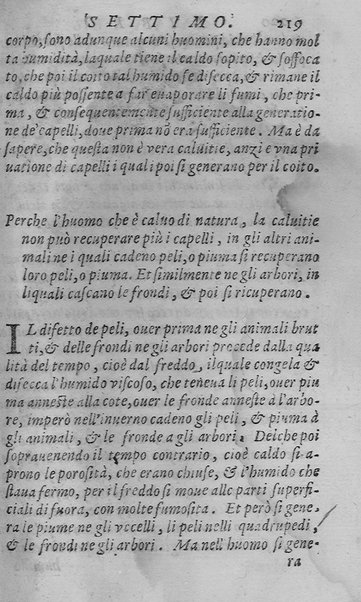 SETTIMO. 219
corpo, sono adunque alcuni huomini, che hanno mol
ta humidità, laquale tiene il caldo sopito, & soffoca
to, che poi il coito tal humido se disecca, & rimane il
caldo più possente a far euaporare li fumi, che pri-
ma, & consequentemente sufficiente alla generatio-
ne de' capelli, doue prima nō era sufficiente. Ma è da
sapere, che questa non è vera caluitie, anzi è vna pri
uatione di capelli i quali poi si generano per il coito.
Perche l'huomo che è caluo di natura, la caluitie
non può recuperare più i capelli, in gli altri ani-
mali ne i quali cadeno peli, o piuma si recuperano
loro peli, o piuma. Et similmente ne gli arbori, in
li quali cascano le frondi, & poi si ricuperano.
IL difetto de peli, ouer prima ne gli animali brut
ti, & delle frondi ne gli arbori procede dalla qua
lità del tempo, cioè dal freddo, ilquale congela &
disecca l'humido viscoso, che teneua li peli, ouer piu
ma anneste alla cote, ouer le fronde anneste à l'arbo-
re, imperò nell'inuerno cadeno gli peli, & piuma à
gli animali, & le fronde a gli arbori. Delche poi
soprauenendo il tempo contrario, cioè caldo si a-
prono le porosità, che erano chiuse, & l'humido che
staua fermo, per il freddo si moue alle parti superfi-
ciali di fuora, con molte fumosità. Et però si gene-
ra le piume ne gli vccelli, li peli nelli quadrupedi,
& le frondi ne gli arbori. Ma nell'huomo si gene-
ra